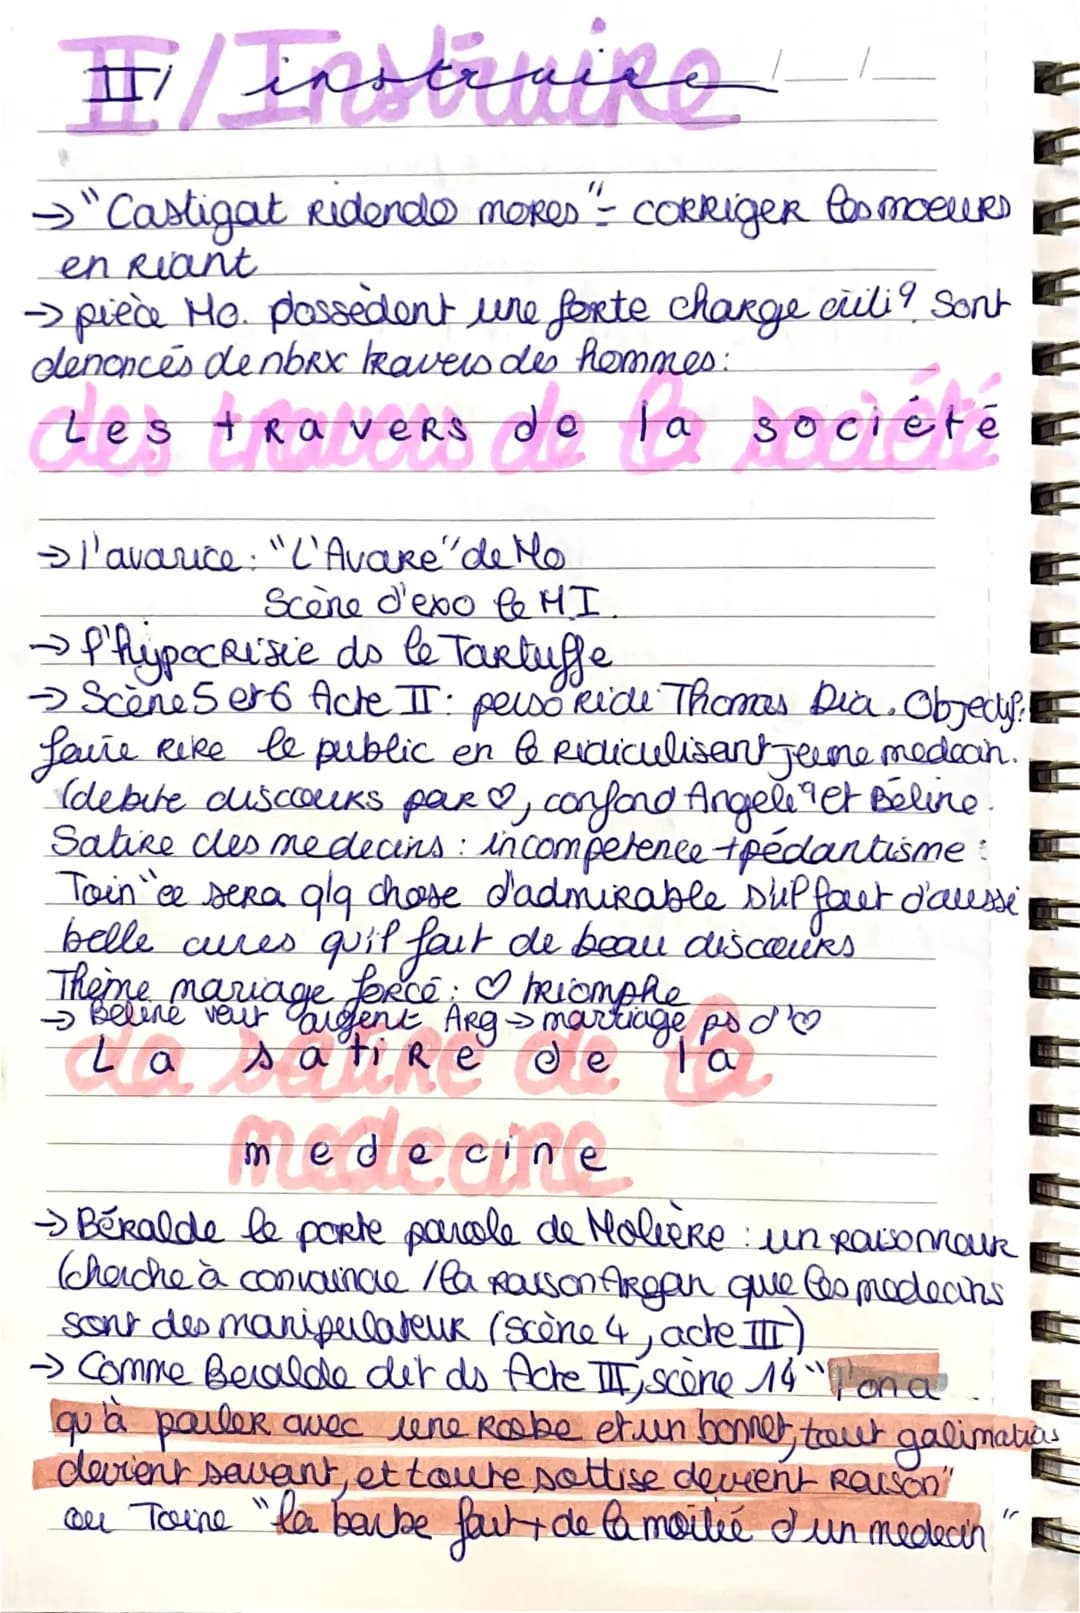 II/ Instruire
→ "Castigat ridendo mores" - corriger les moeurs
en riant
→ pièce Mo. possèdent une forte charge Sont
denoncés de nbrx travers des hommes:
Les travers de la société
→ l'avarice: "L'Avare" de Mo
Scène d'expo le MI.
→ l'hypocrisie ds le Tartuffe
→ Scène 5 et 6 Acte II: perso ride Thomas Dia. Objectif:
faire rire le public en le ridiculisant jeune medecin.
(debite discours par ♡, confond Angeliq et Béline.
Satire des medecins: incompetence + pédantisme:
Toin "ce sera qlq chose d'admirable s'il fait d'aussi
belle cures qu'il fait de beau discours
Thème mariage forcé: ♡ triomphe
→ Beline veut argent Arg → martiage ps d'♡
La satire de la
medecine
→ Béralde le porte parole de Molière: un raisonneur
(cherche à convaincre / la raison Argan que les medecins
sont des manipulateur (scène 4, acte III)
→ Comme Beralde dit ds Acte III, scène 14 "l'on a
qu'à parler avec une robe et un bonnet, tout galimatias
devient savant, et toute sottise devient raison"
ou Toine "la barbe fait + de la moitié d'un medecin"